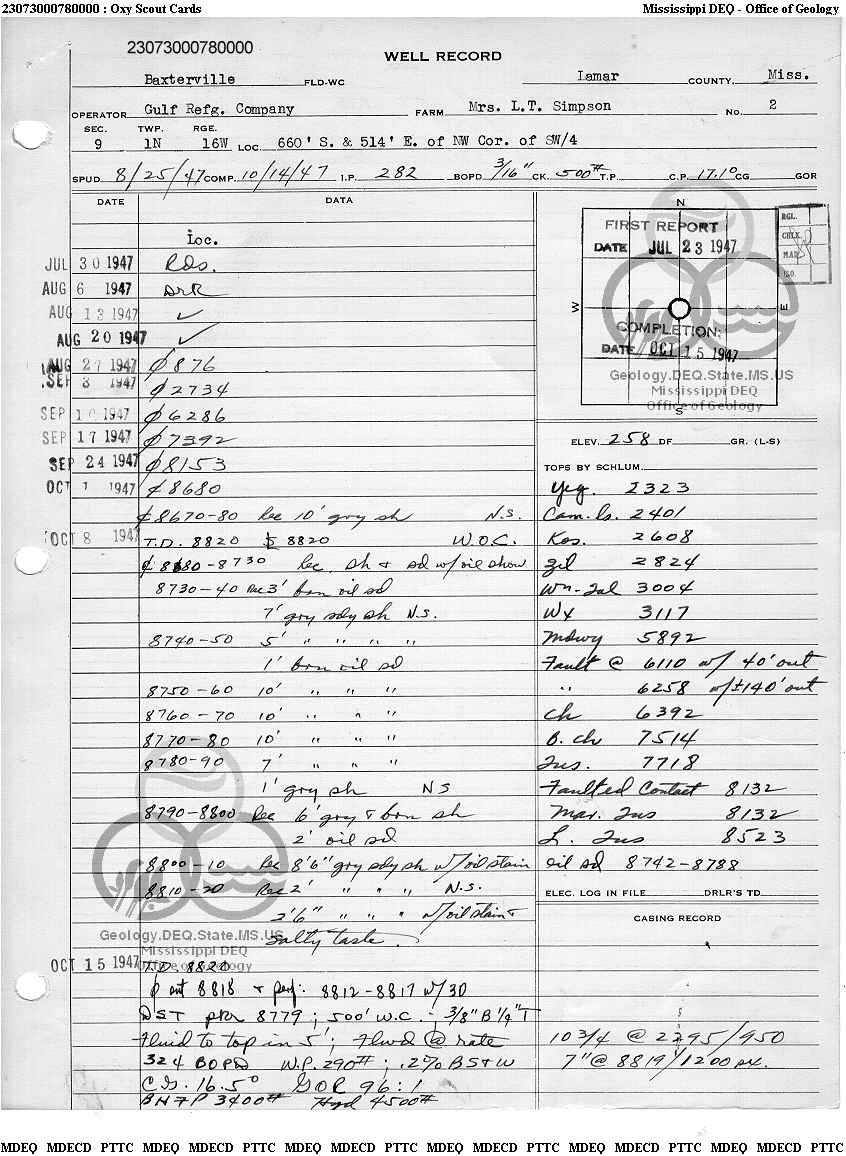 23073000780000 : Oxy Scout Cards Mississippi DEQ - Office of Geology
23073000780000
WELL RECORD
Baxterville FLD-WC Lamar COUNTY, Miss.
OPERATOR Gulf Refg. Company FARM Mrs. L.T. Simpson No. 2
SEC. TWP. RGE.
9 1N 16W LOC. 660' S. & 514' E. of NW Cor. of SW/4
SPUD 8/25/47 COMP. 10/14/47 I.P. 282 BOPD 3/16" CK. 500# T.P. C.P. 17.1° CG GOR
DATE DATA
Loc.
JUL 30 1947 Rds.
AUG 6 1947 DrR
AUG 13 1947 ✓
AUG 20 1947 ✓
AUG 27 1947 ₵ 876
SEP 3 1947 ₵ 2734
SEP 10 1947 ₵ 6286
SEP 17 1947 ₵ 7392
SEP 24 1947 ₵ 8153
OCT 1 1947 ₵ 8680
₵ 8670-80 Rec 10' gry sh N.S.
OCT 8 1947 T.D. 8820 $ 8820 W.O.C.
₵ 8680-8730 Rec. sh & sd w/oil show
8730-40 Rec 3' brn oil sd
7' gry sdy sh N.S.
8740-50 5' " " " "
1' brn oil sd
8750-60 10' " " "
8760-70 10' " " "
8770-80 10' " " "
8780-90 7' " " "
1' gry sh NS
8790-8800 Rec 6' gry & brn sh
2' oil sd
8800-10 Rec 8'6" gry sdy sh w/oil stain
8810-20 Rec 2' " " " N.S.
2'6" " " " w/oil stain &
salty taste.
OCT 15 1947 T.D. 8820
₵ out 8818 & perf: 8812-8817 w/30
DST pkr 8779; 500' W.C. - 3/8" B 1/4" T
Fluid to top in 5'; Flwd @ rate
324 BOPD W.P. 290#; .2% BS&W
C.G. 16.5° GOR 96:1
BHFP 3400# Hyd 4500#
N
W
E
S
FIRST REPORT
DATE JUL 23 1947
COMPLETION:
DATE OCT 15 1947
RGL.
CHLK.
MAR.
ISO.
Geology.DEQ.State.MS.US
Mississippi DEQ
Office of Geology
ELEV. 258 DF GR. (L-S)
TOPS BY SCHLUM.
Yeg. 2323
Cam. ls. 2401
Kos. 2608
Zil 2824
Wn-Tal 3004
Wx 3117
Mdwy 5892
Fault @ 6110 w/ 40' out
" 6258 w/±140' out
Ch 6392
B. Ch 7514
Tus. 7718
Faulted Contact 8132
Mar. Tus 8132
L. Tus 8523
oil sd 8742-8788
ELEC. LOG IN FILE DRLR'S TD
CASING RECORD
10 3/4 @ 2295/950
7" @ 8819/1200 sx.
Geology.DEQ.State.MS.US
Mississippi DEQ
Office of Geology
MDEQ MDECD PTTC MDEQ MDECD PTTC MDEQ MDECD PTTC MDEQ MDECD PTTC MDEQ MDECD PTTC MDEQ MDECD PTTC